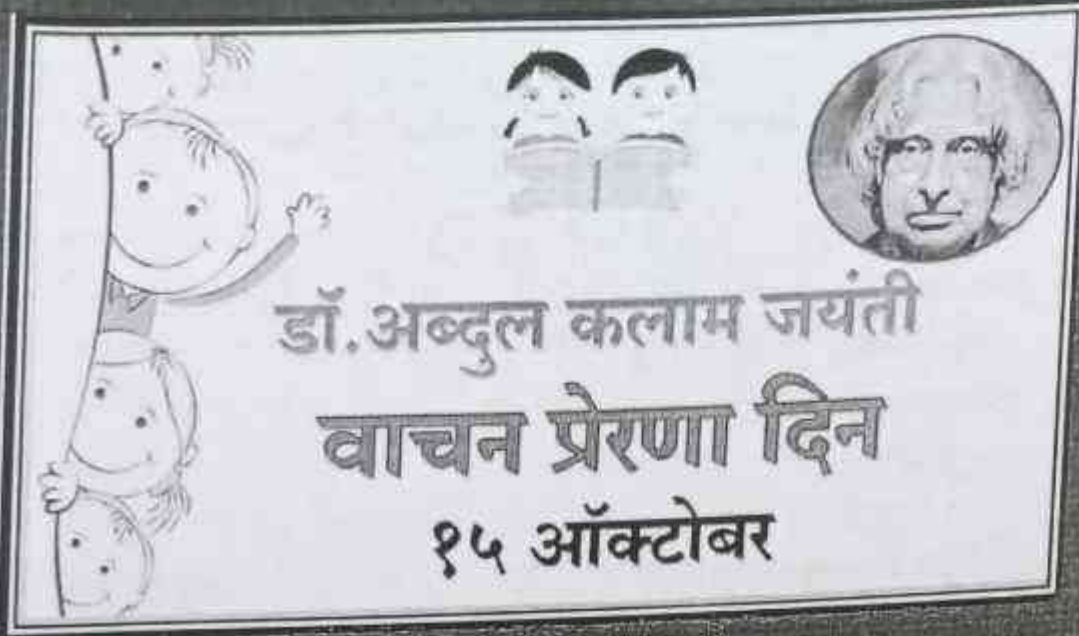 डॉ.अब्दुल कलाम जयंती
वाचन प्रेरणा दिन
१५ ऑक्टोबर